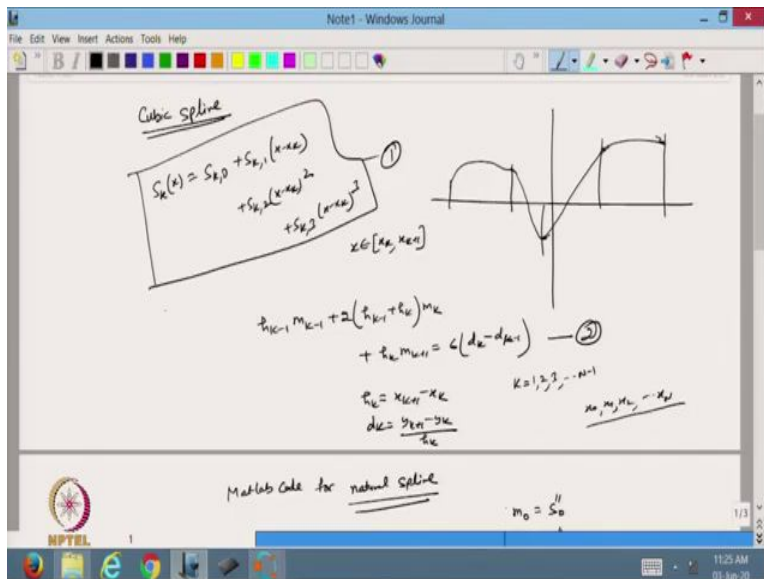 Note1 - Windows Journal
File Edit View Insert Actions Tools Help
Cubic spline
S_k(x) = S_{k,0} + S_{k,1}(x-x_k)
+ S_{k,2}(x-x_k)^2
+ S_{k,3}(x-x_k)^3
①
x∈[x_k, x_{k+1}]
h_{k-1} m_{k-1} + 2(h_{k-1} + h_k) m_k
+ h_k m_{k+1} = 6(d_k - d_{k-1}) — ②
h_k = x_{k+1} - x_k
K = 1, 2, 3, ... N-1
d_k = \frac{y_{k+1} - y_k}{h_k}
x_0, x_1, x_2, ... x_N
Matlab Code for natural spline
m_0 = S_0''
1/3
NPTEL
1
11:25 AM
03-Jun-20